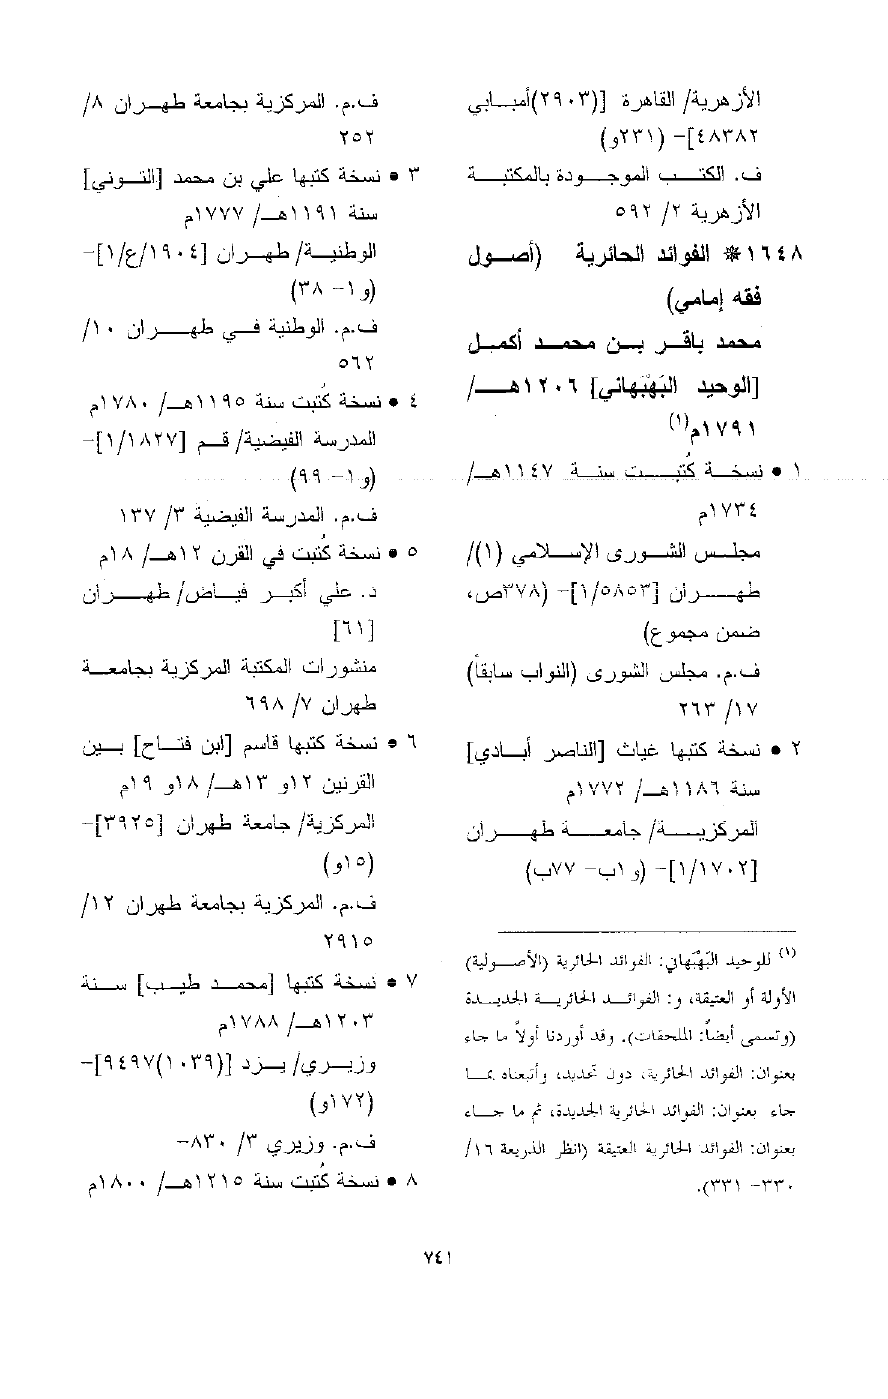 الأزهرية/ القاهرة [(٢٩٠٣)أمبابي
٤٨٣٨٢]- (٢٣١و)
ف. الكتب الموجودة بالمكتبة
الأزهرية ٢/ ٥٩٢
١٦٤٨* الفوائد الحائرية (أصول
فقه إمامي)
محمد باقر بن محمد أكمل
[الوحيد البَهْبَهاني] ١٢٠٦هـ/
١٧٩١م(١)
١ • نسخة كُتبت سنة ١١٤٧هـ/
١٧٣٤م
مجلس الشورى الإسلامي (١)/
طهران [١/٥٨٥٣]- (٣٧٨ص،
ضمن مجموع)
ف.م. مجلس الشورى (النواب سابقاً)
١٧/ ٢٦٣
٢ • نسخة كتبها غياث [الناصر أبادي]
سنة ١١٨٦هـ/ ١٧٧٢م
المركزية/ جامعة طهران
[١/١٧٠٢]- (و ١ب- ٧٧ب)
(١) للوحيد البَهْبَهاني: الفوائد الحائرية (الأصولية)
الأولة أو العتيقة، و: الفوائد الحائرية الجديدة
(وتسمى أيضاً: الملحقات). وقد أوردنا أولاً ما جاء
بعنوان: الفوائد الحائرية، دون تحديد، وأتبعناه بما
جاء بعنوان: الفوائد الحائرية الجديدة، ثم ما جاء
بعنوان: الفوائد الحائرية العتيقة (انظر الذريعة ١٦/
٣٣٠- ٣٣١).
ف.م. المركزية بجامعة طهران ٨/
٢٥٢
٣ • نسخة كتبها علي بن محمد [التوني]
سنة ١١٩١هـ/ ١٧٧٧م
الوطنية/ طهران [١٩٠٤/ع/١]-
(و ١- ٣٨)
ف.م. الوطنية في طهران ١٠/
٥٦٢
٤ • نسخة كُتبت سنة ١١٩٥هـ/ ١٧٨٠م
المدرسة الفيضية/ قم [١/١٨٢٧]-
(و ١- ٩٩)
ف.م. المدرسة الفيضية ٣/ ١٣٧
٥ • نسخة كُتبت في القرن ١٢هـ/ ١٨م
د. علي أكبر فياض/ طهران
[٦١]
منشورات المكتبة المركزية بجامعة
طهران ٧/ ٦٩٨
٦ • نسخة كتبها قاسم [ابن فتاح] بين
القرنين ١٢و ١٣هـ/ ١٨و ١٩م
المركزية/ جامعة طهران [٣٩٢٥]-
(١٥و)
ف.م. المركزية بجامعة طهران ١٢/
٢٩١٥
٧ • نسخة كتبها [محمد طيب] سنة
١٢٠٣هـ/ ١٧٨٨م
وزيري/ يزد [(١٠٣٩)٩٤٩٧]-
(١٧٢و)
ف.م. وزيري ٣/ ٨٣٠-
٨ • نسخة كُتبت سنة ١٢١٥هـ/ ١٨٠٠م
٧٤١